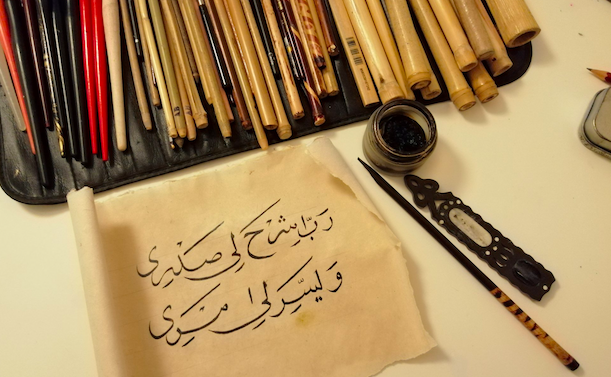 رَبّ اشْرَحْ لِي صَدْرِي
وَ يَسِّرْ لِي امْرِي